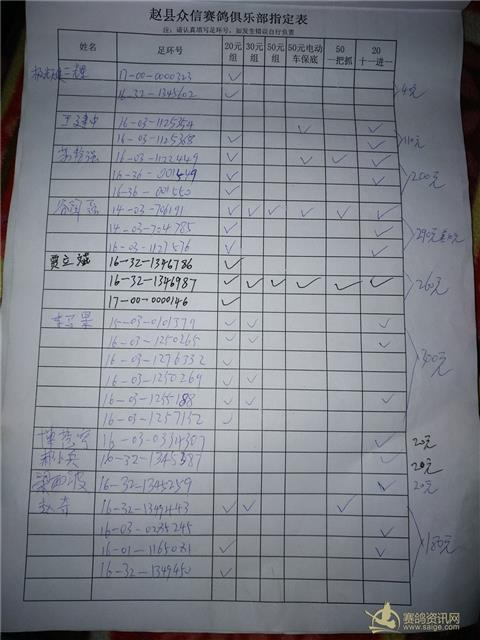 赵县众信赛鸽俱乐部指定表
注：请认真填写足环号，如发生错误自行负责
姓名 足环号 20元组 30元组 50元组 50元电动车保底 50一把抓 20十一进一
17-00-0000323 ✓
16-32-1345602 ✓
40元
16-03-1125354 ✓ ✓
16-03-1125368 ✓ ✓
110元
16-03-1122449 ✓ ✓ ✓ ✓
16-36-001449 ✓ ✓
16-36-001550 ✓
200元
14-03-706191 ✓ ✓ ✓ ✓ ✓ ✓
14-03-704785 ✓ ✓
16-03-1127576 ✓ ✓
290元
贾立斌 16-32-1346786 ✓
16-32-1346987 ✓ ✓ ✓ ✓ ✓ ✓
17-00-0000146 ✓
260元
15-03-0101379 ✓ ✓ ✓
16-03-1250265 ✓ ✓ ✓
16-03-1276332 ✓
16-03-1250269 ✓ ✓
16-03-1255188 ✓ ✓ ✓
16-03-1257152 ✓
300元
16-03-0354307 ✓ 20元
16-32-1345387 ✓ 20元
16-32-1345259 ✓ 20元
赵奇 16-32-1349443 ✓ ✓ ✓
16-03-0235245 ✓
16-01-1165031 ✓ ✓
16-32-1349450 ✓
180元
赛鸽资讯网
www.saige.com